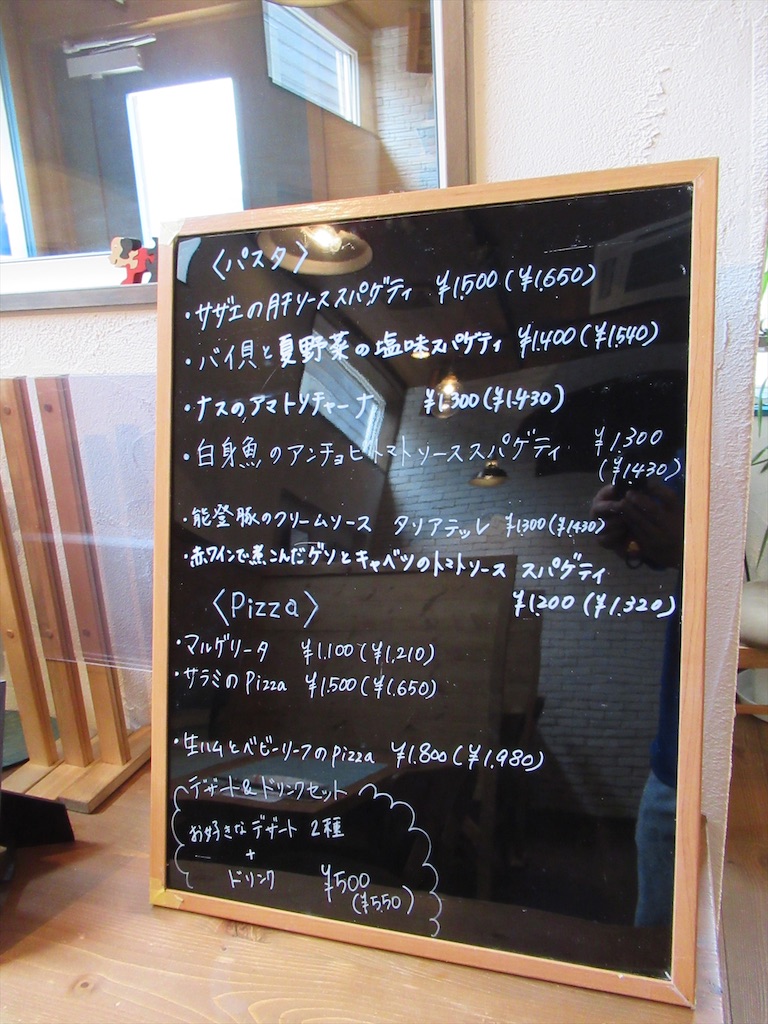 〈パスタ〉
・サザエの肝ソーススパゲティ ¥1,500(¥1,650)
・バイ貝と夏野菜の塩味スパゲティ ¥1,400(¥1,540)
・ナスのアマトリチャーナ ¥1,300(¥1,430)
・白身魚のアンチョビトマトソーススパゲティ ¥1,300
(¥1,430)
・能登豚のクリームソース タリアテッレ ¥1300(¥1,430)
・赤ワインで煮こんだゲソとキャベツのトマトソース スパゲティ
¥1,200(¥1,320)
〈Pizza〉
・マルゲリータ ¥1,100(¥1,210)
・サラミのPizza ¥1,500(¥1,650)
・生ハムとベビーリーフのpizza ¥1,800(¥1,980)
デザート&ドリンクセット
お好きなデザート 2種
+
ドリンク ¥500
(¥550)